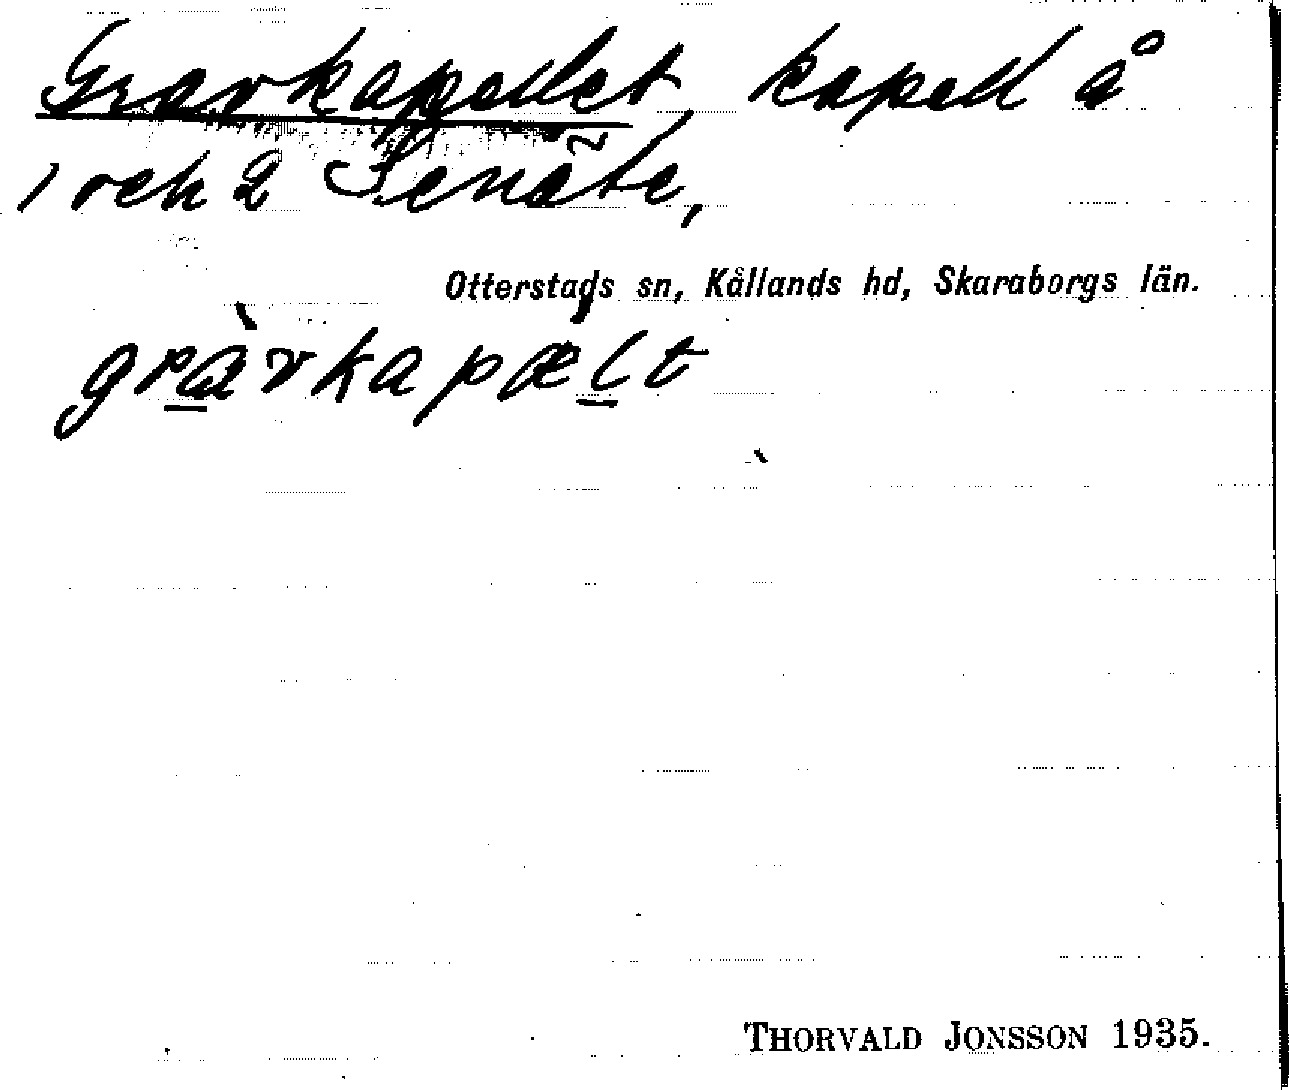 Gravkapellet, kapell å
1 och 2 Senäte,
Otterstads sn, Kållands hd, Skaraborgs län.
gràvkapælt
THORVALD JONSSON 1935.